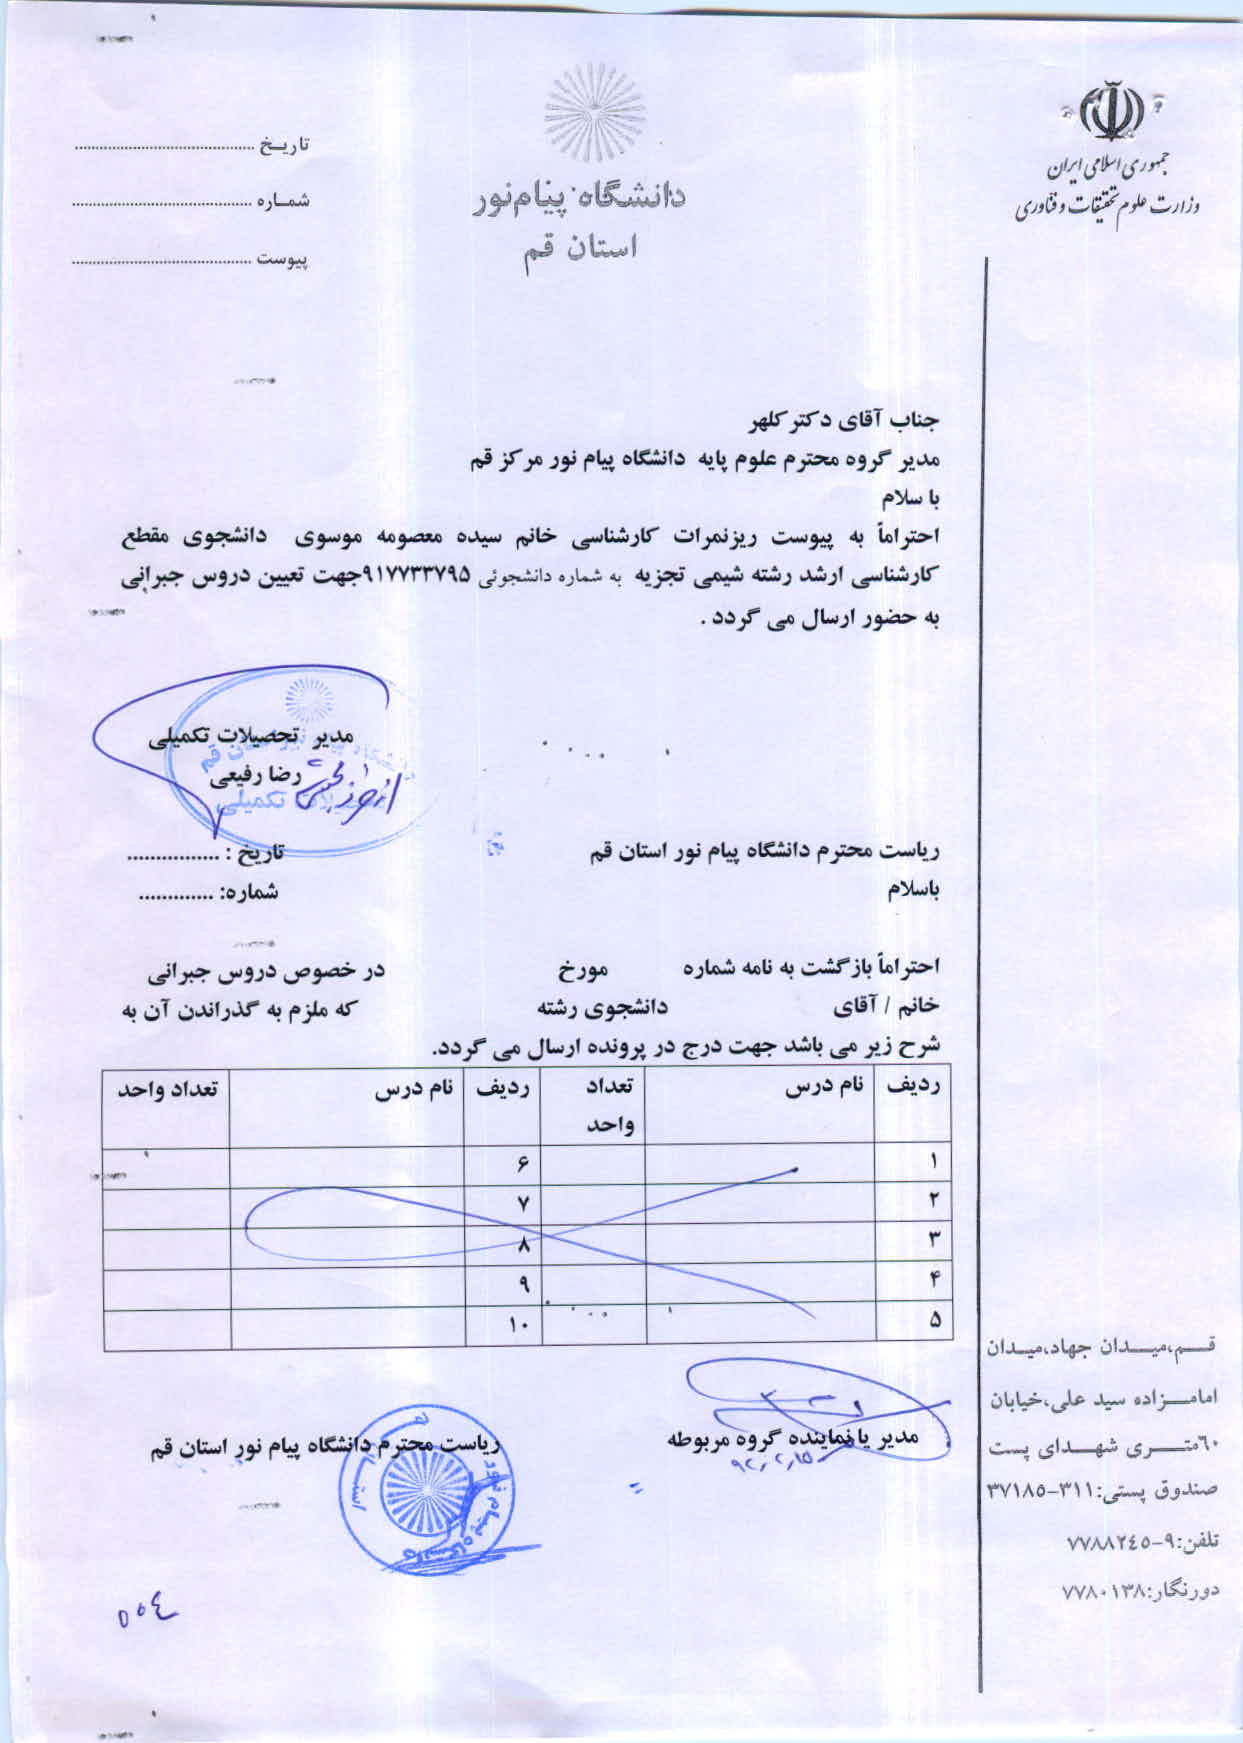 جمهوری اسلامی ایران
وزارت علوم تحقیقات و فناوری
دانشگاه پیام‌نور
استان قم
تاریـخ ......................................
شمـاره ......................................
پیوست ......................................
جناب آقای دکتر کلهر
مدیر گروه محترم علوم پایه دانشگاه پیام نور مرکز قم
با سلام
احتراماً به پیوست ریزنمرات کارشناسی خانم سیده معصومه موسوی دانشجوی مقطع
کارشناسی ارشد رشته شیمی تجزیه به شماره دانشجوئی ۹۱۷۷۳۳۷۹۵جهت تعیین دروس جبرانی
به حضور ارسال می گردد .
مدیر تحصیلات تکمیلی
رضا رفیعی
ریاست محترم دانشگاه پیام نور استان قم
تاریخ : ................
باسلام
شماره: .............
احتراماً بازگشت به نامه شماره مورخ در خصوص دروس جبرانی
خانم / آقای دانشجوی رشته که ملزم به گذراندن آن به
شرح زیر می باشد جهت درج در پرونده ارسال می گردد.
ردیف نام درس تعداد واحد ردیف نام درس تعداد واحد
۱ ۶
۲ ۷
۳ ۸
۴ ۹
۵ ۱۰
مدیر یا نماینده گروه مربوطه
ریاست محترم دانشگاه پیام نور استان قم
۹۲٫۲٫۱۵
قـــم،میــــدان جهاد،میــدان
امامــــزاده سید علی،خیابان
٦٠متـــری شهـــدای پست
صندوق پستی:۳۱۱-۳۷۱۸۵
تلفن:۹-۷۷۸۸۲٤٥
دورنگار:۷۷۸۰۱۳۸